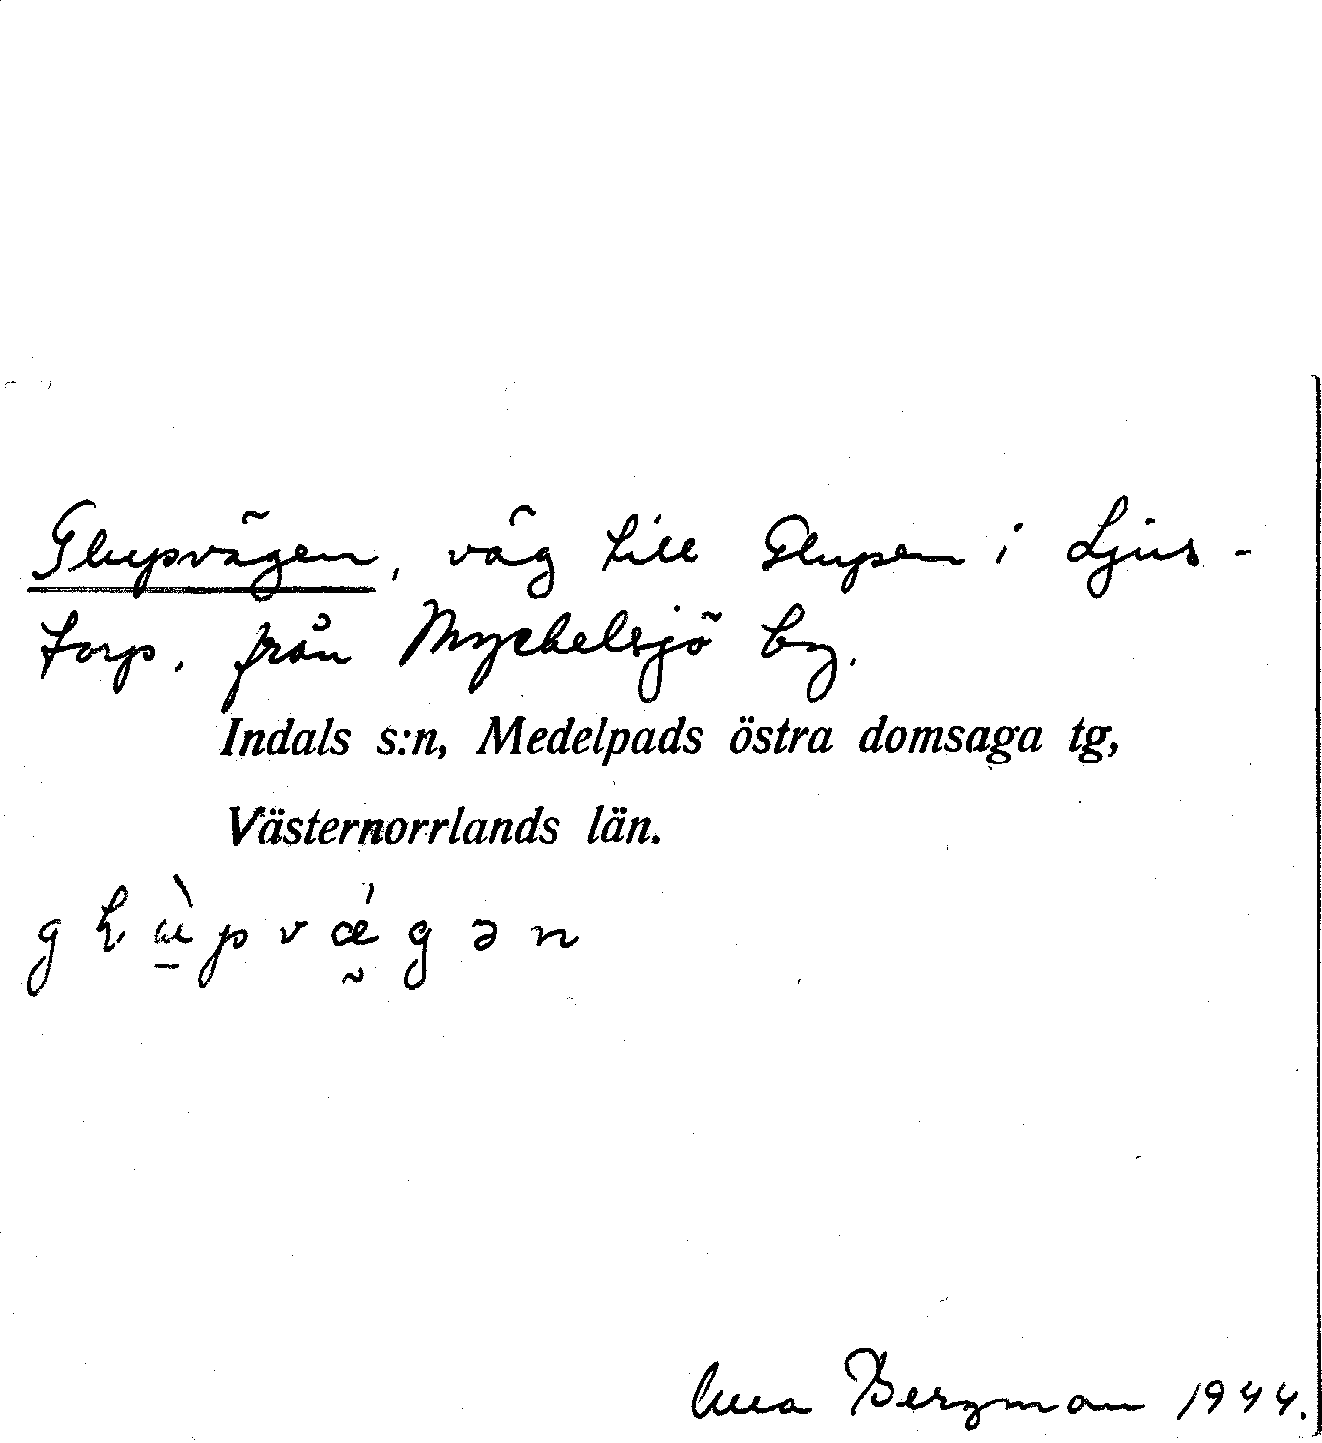 Glupvägen, väg till Glupen i Ljus-
torp, från Myckelsjö by.
Indals s:n, Medelpads östra domsaga tg,
Västernorrlands län.
Bergman 1944.